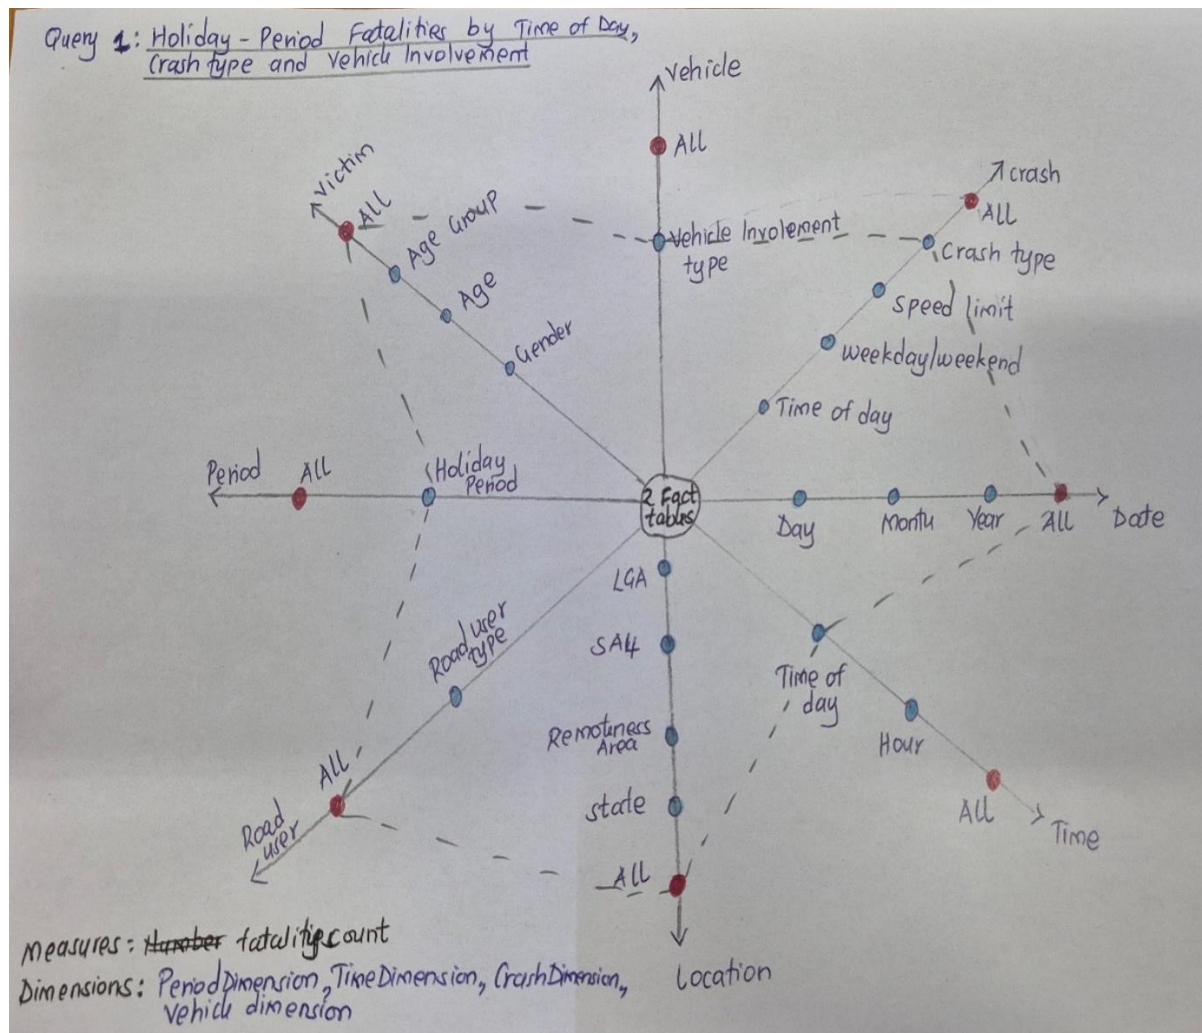 Query 1: Holiday - Period Fatalities by Time of Day,
Crash type and Vehicle Involvement
Vehicle
All
Victim
All
Age Group
Age
Gender
Vehicle Involement
type
crash
All
Crash type
Speed limit
weekday/weekend
Time of day
Period
All
Holiday
Period
2 Fact
tables
Day
Month
Year
All
Date
LGA
SA4
Remoteness
Area
state
All
Location
Time of
day
Hour
All
Time
Road user
type
All
Road
user
Measures: Number fatality count
Dimensions: Period Dimension, Time Dimension, Crash Dimension,
Vehicle dimension